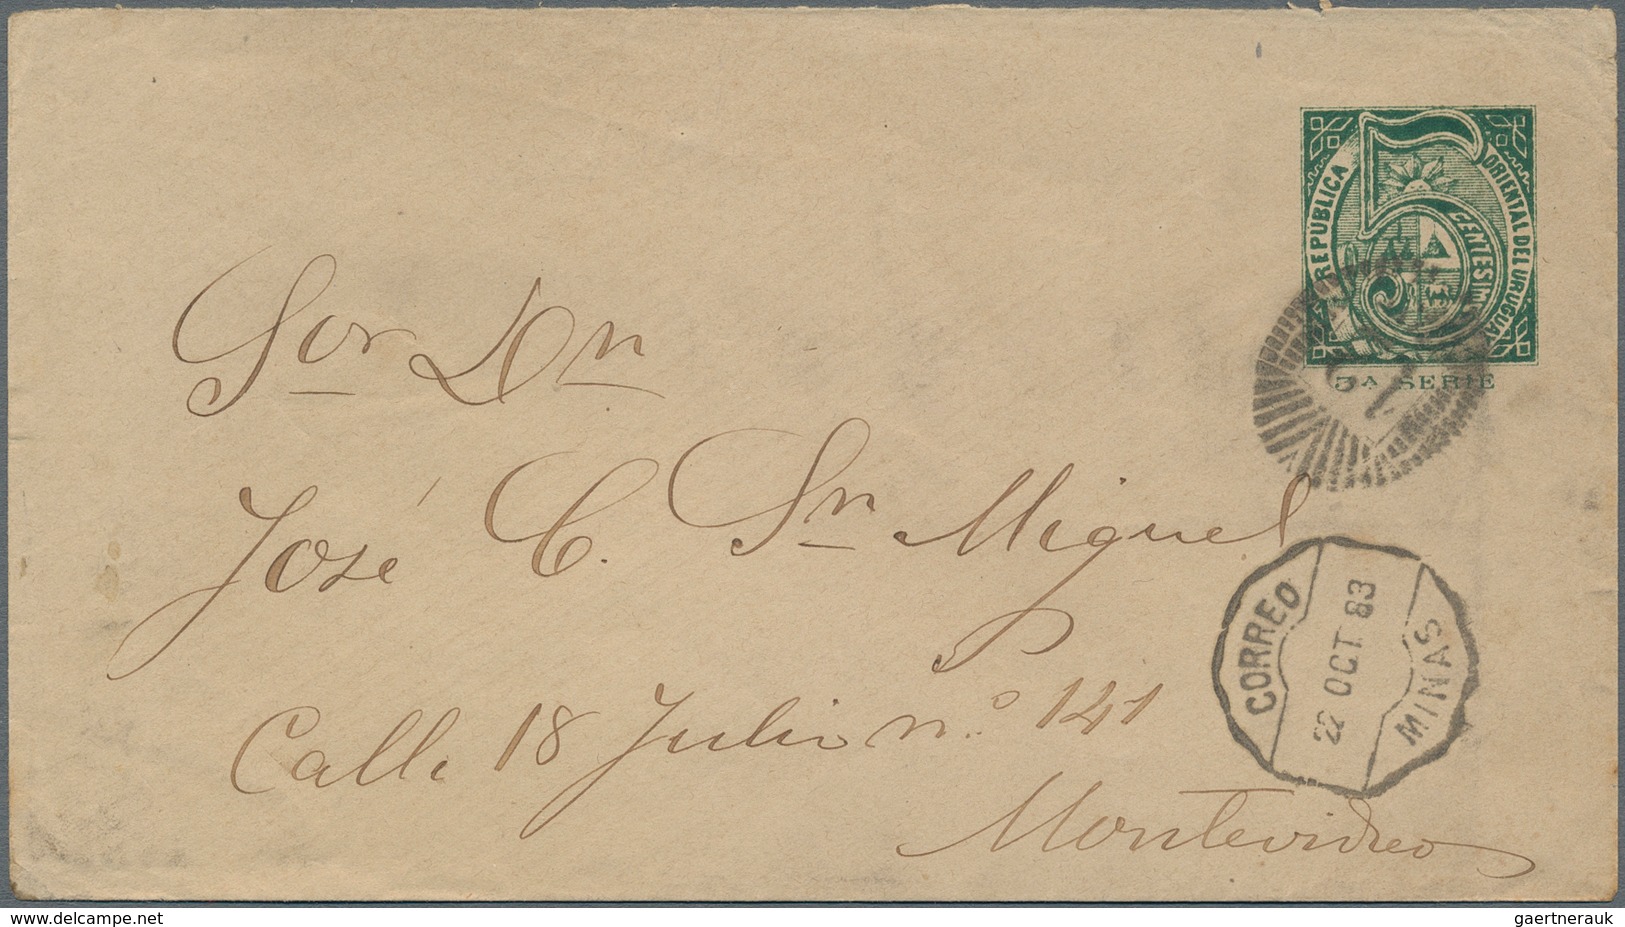 REPUBLICA ORIENTAL DEL URUGUAY
5 CENTESIMOS
3A SERIE
Sor Dn
José C. Sn Miguel
CORREO
22 OCT. 83
MINAS
Calle 18 Julio nº. 141
Montevideo
www.delcampe.net
gaertnerauk